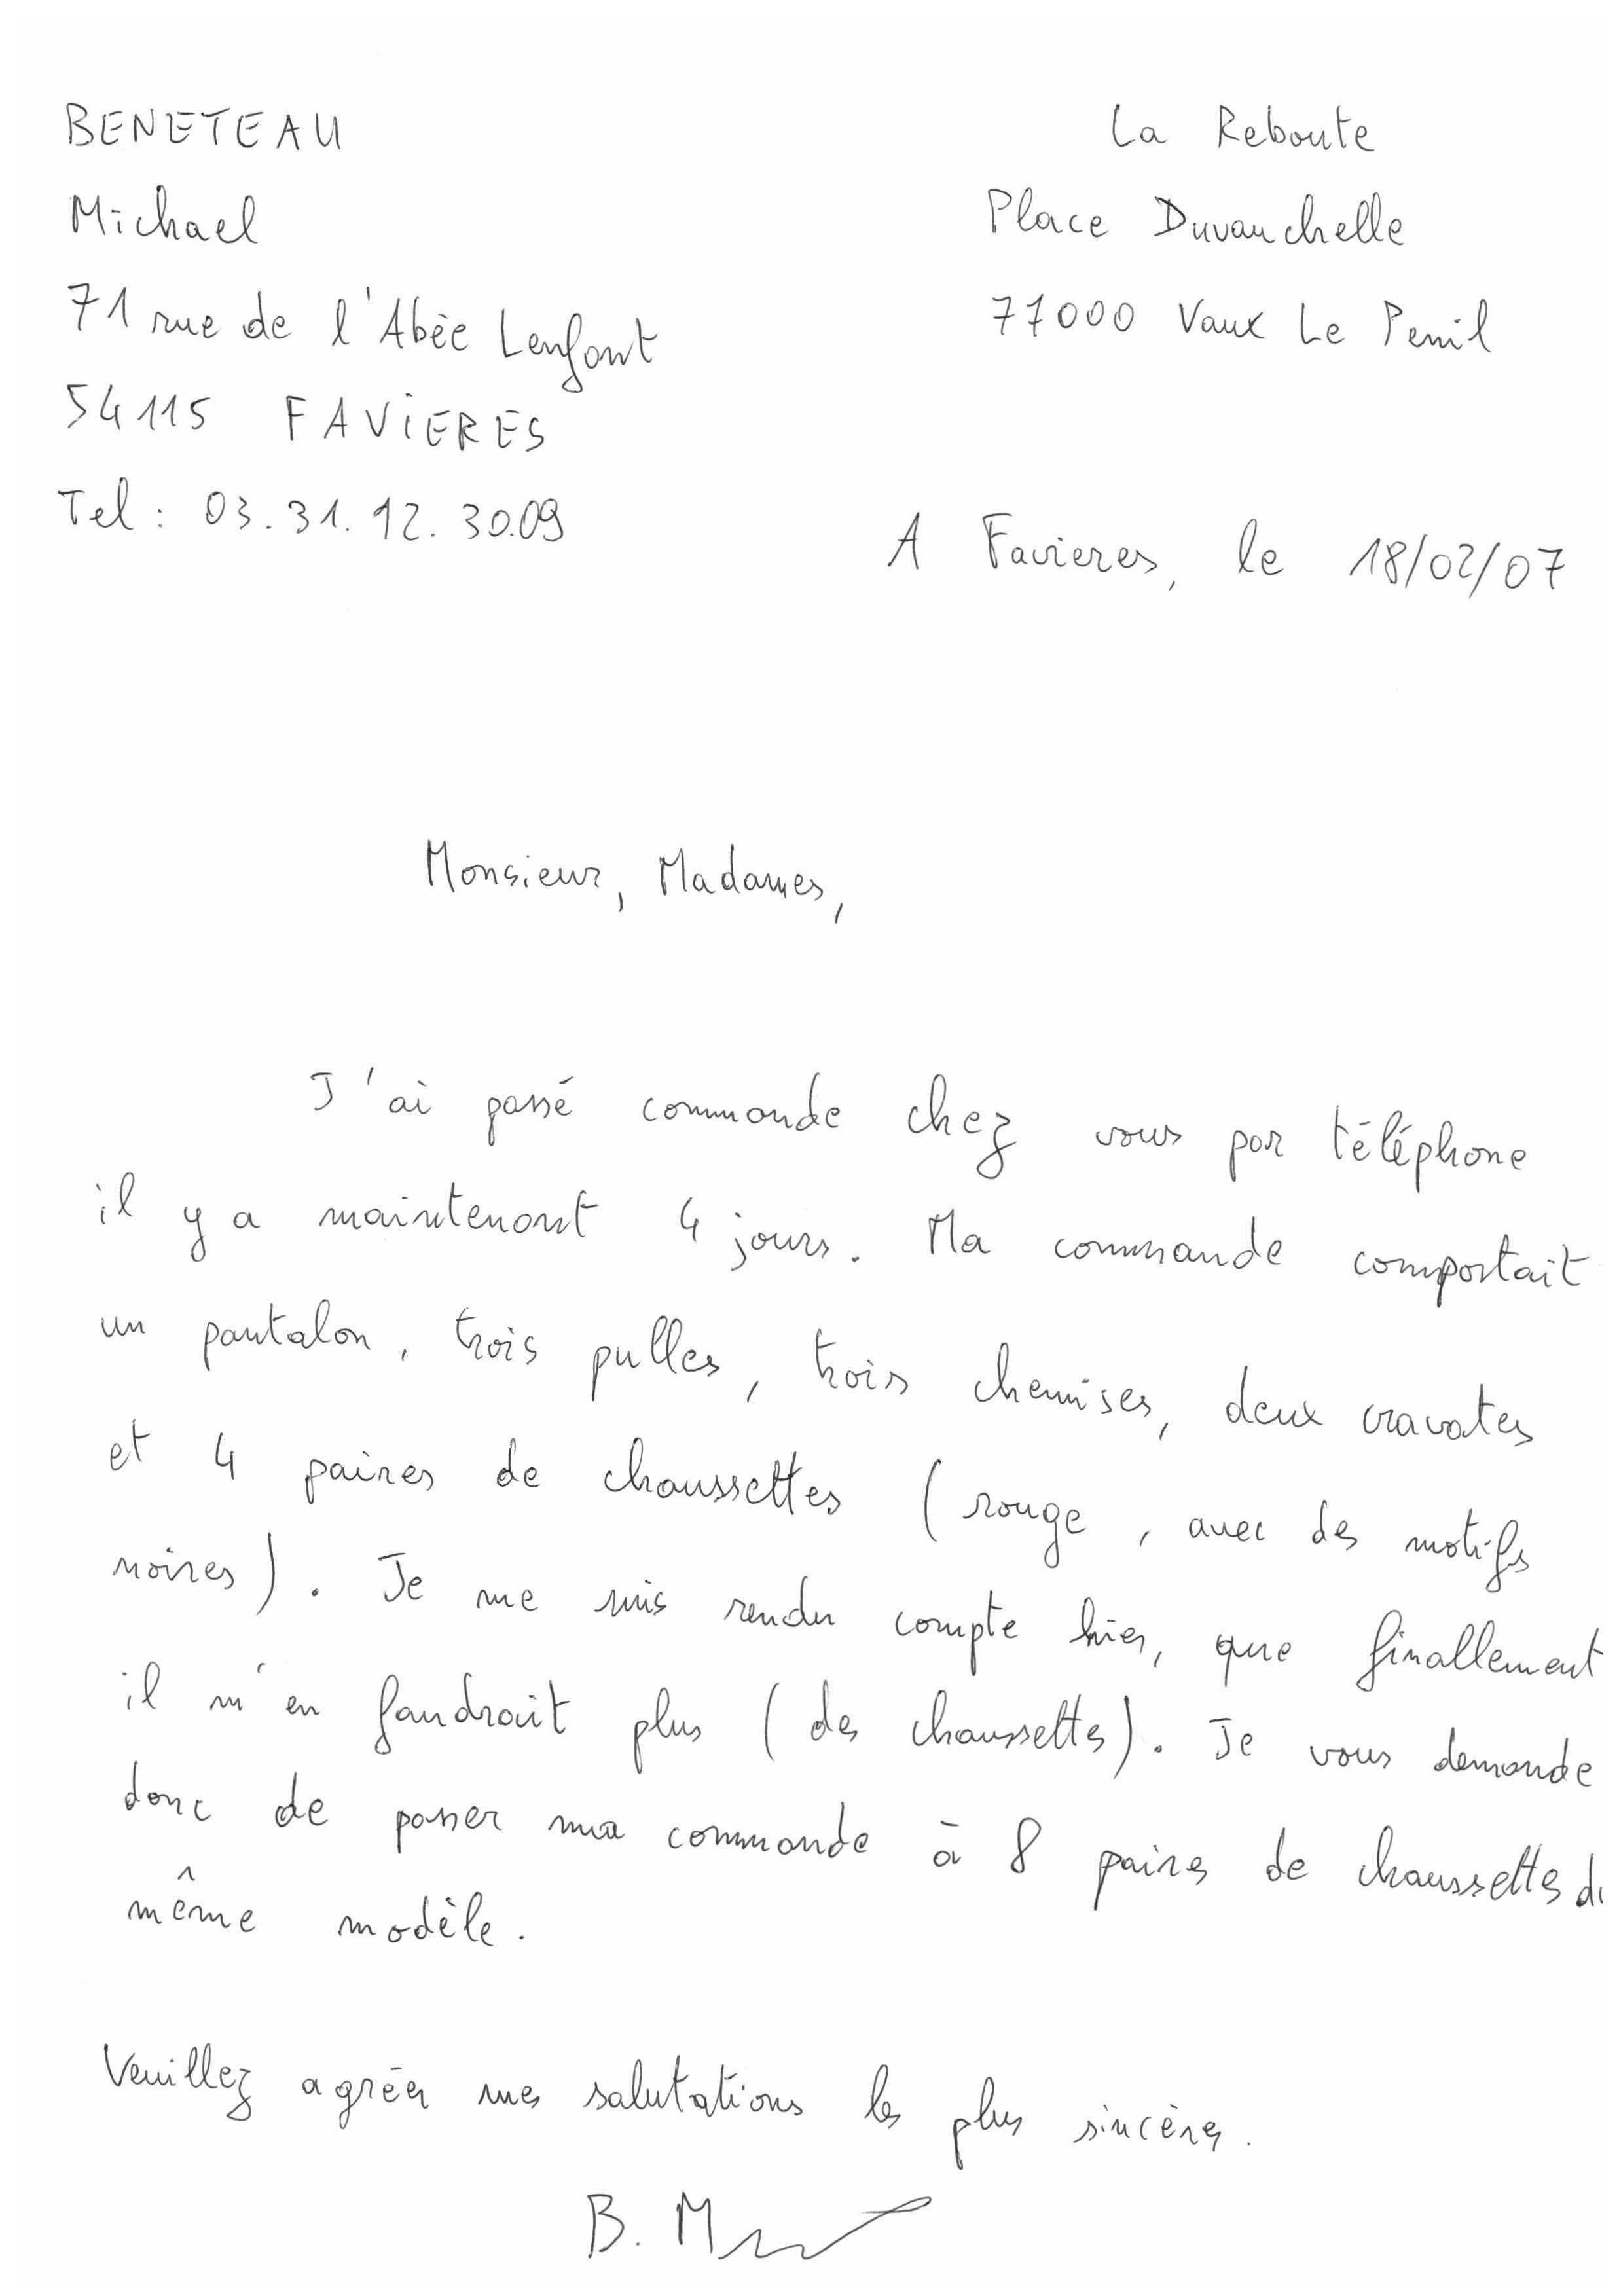 BENETEAU
Michael
71 rue de l'Abée Lenfant
54115 FAVIERES
Tel : 03.31.12.30.09
La Reboute
Place Duvauchelle
77000 Vaux Le Penil
A Favieres, le 18/02/07
Monsieur, Madames,
J'ai passé commande chez vous par téléphone
il y a maintenant 4 jours. Ma commande comportait
un pantalon, trois pulles, trois chemises, deux cravates
et 4 paires de chaussettes (rouge, avec des motifs
noires). Je me suis rendu compte hier, que finallement
il m'en faudrait plus (des chaussettes). Je vous demande
donc de passer ma commande à 8 paires de chaussettes du
même modèle.
Veuillez agréer mes salutations les plus sincères.
B. M